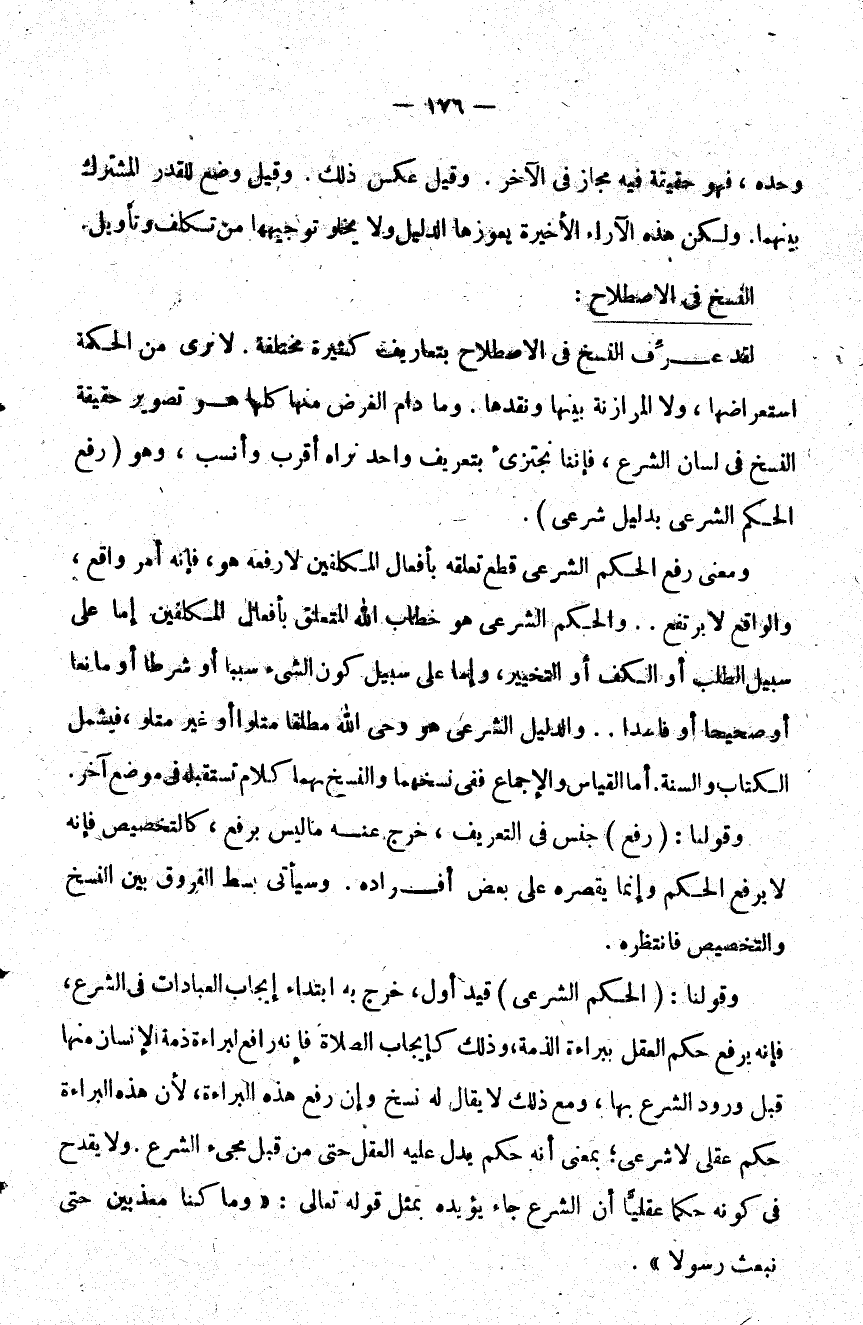 — ١٧٦ —
وحده ، فهو حقيقة فيه مجاز فى الآخر . وقيل عكس ذلك . وقيل وضع للقدر المشترك
بينهما. ولكن هذه الآراء الأخيرة يعوزها الدليل ولا يخلو توجيهها من تكلف وتأويل.
النسخ فى الاصطلاح :
لقد عرِّف النسخ فى الاصطلاح بتعاريف كثيرة مختلفة . لا نرى من الحكمة
استعراضها ، ولا الموازنة بينها ونقدها . وما دام الغرض منها كلها هو تصوير حقيقة
النسخ فى لسان الشرع ، فإننا نجتزىء بتعريف واحد نراه أقرب وأنسب ، وهو ( رفع
الحكم الشرعى بدليل شرعى ) .
ومعنى رفع الحكم الشرعى قطع تعلقه بأفعال المكلفين لا رفعه هو ، فإنه أمر واقع ،
والواقع لا يرتفع . . والحكم الشرعى هو خطاب الله المتعلق بأفعال المكلفين إما على
سبيل الطلب أو الكف أو التخيير، وإما على سبيل كون الشىء سببا أو شرطا أو مانعا
أو صحيحا أو فاسدا . . والدليل الشرعى هو وحى الله مطلقا متلوا أو غير متلو ، فيشمل
الكتاب والسنة. أما القياس والإجماع ففى نسخهما والنسخ بهما كلام تستقبله فى موضع آخر.
وقولنا : ( رفع ) جنس فى التعريف ، خرج عنه ما ليس برفع ، كالتخصيص فإنه
لا يرفع الحكم وإنما يقصره على بعض أفراده . وسيأتى بسط الفروق بين النسخ
والتخصيص فانتظره .
وقولنا : ( الحكم الشرعى ) قيد أول، خرج به ابتداء إيجاب العبادات فى الشرع،
فإنه يرفع حكم العقل ببراءة الذمة، وذلك كإيجاب الصلاة فإنه رافع لبراءة ذمة الإنسان منها
قبل ورود الشرع بها ، ومع ذلك لا يقال له نسخ وإن رفع هذه البراءة، لأن هذه البراءة
حكم عقلى لا شرعى؛ بمعنى أنه حكم يدل عليه العقل حتى من قبل مجىء الشرع . ولا يقدح
فى كونه حكما عقليًّا أن الشرع جاء يؤيده بمثل قوله تعالى : « وما كنا معذبين حتى
نبعث رسولا » .